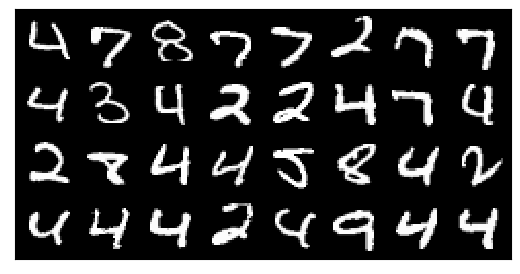 4 7 8 7 7 2 7 7
4 3 4 2 2 4 7 4
2 8 4 4 5 8 4 2
4 4 4 2 4 9 4 4